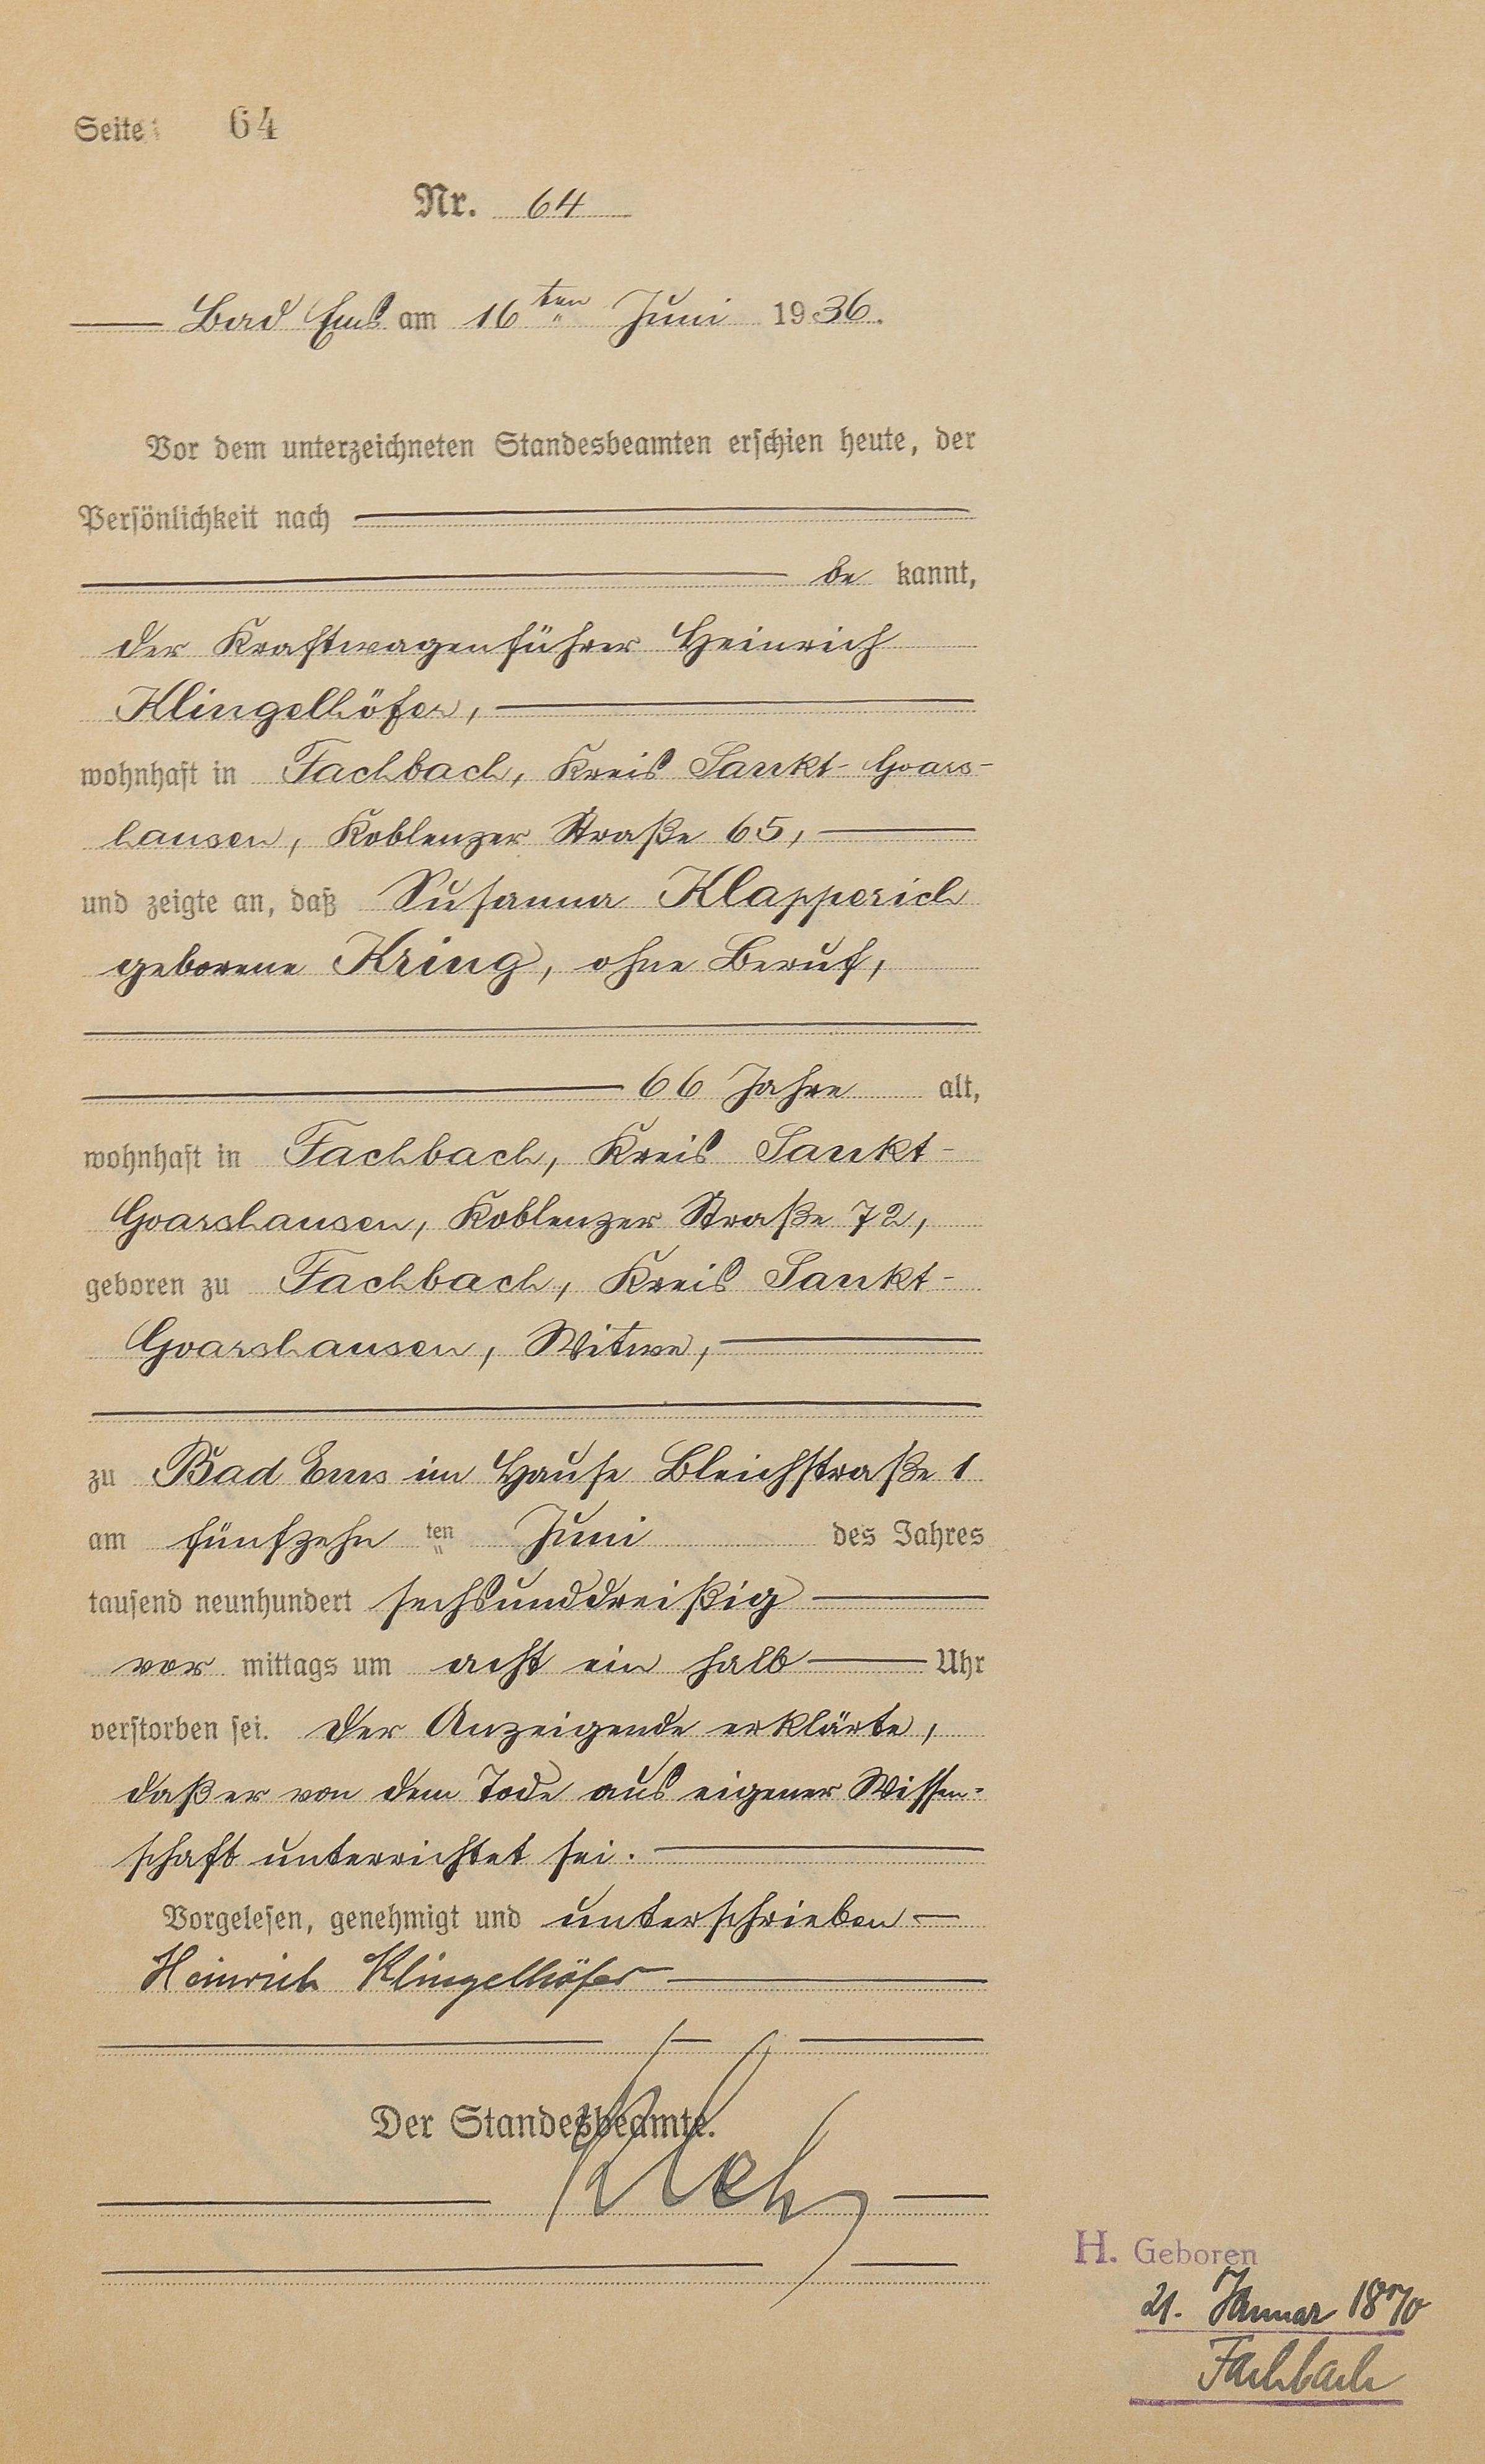 Seite: 64
Nr. 64
Bad Ems am 16ten Juni 1936.
Vor dem unterzeichneten Standesbeamten erschien heute, der
Persönlichkeit nach
be kannt,
der Kraftwagenführer Heinrich
Klingelhöfer,
wohnhaft in Fachbach, Kreis Sankt-Goars-
hausen, Koblenzer Straße 65,
und zeigte an, daß Susanna Klapperich
geborene Kring, ohne Beruf,
66 Jahre alt,
wohnhaft in Fachbach, Kreis Sankt-
Goarshausen, Koblenzer Straße 72,
geboren zu Fachbach, Kreis Sankt-
Goarshausen, Witwe,
zu Bad Ems im Hause Bleichstraße 1
am fünfzehn ten Juni des Jahres
tausend neunhundert sechsunddreißig
vor mittags um acht ein halb Uhr
verstorben sei. Der Anzeigende erklärte,
daß er von dem Tode aus eigener Wissen-
schaft unterrichtet sei.
Vorgelesen, genehmigt und unterschrieben
Heinrich Klingelhöfer
Der Standesbeamte.
H. Geboren
21. Januar 1870
Fachbach